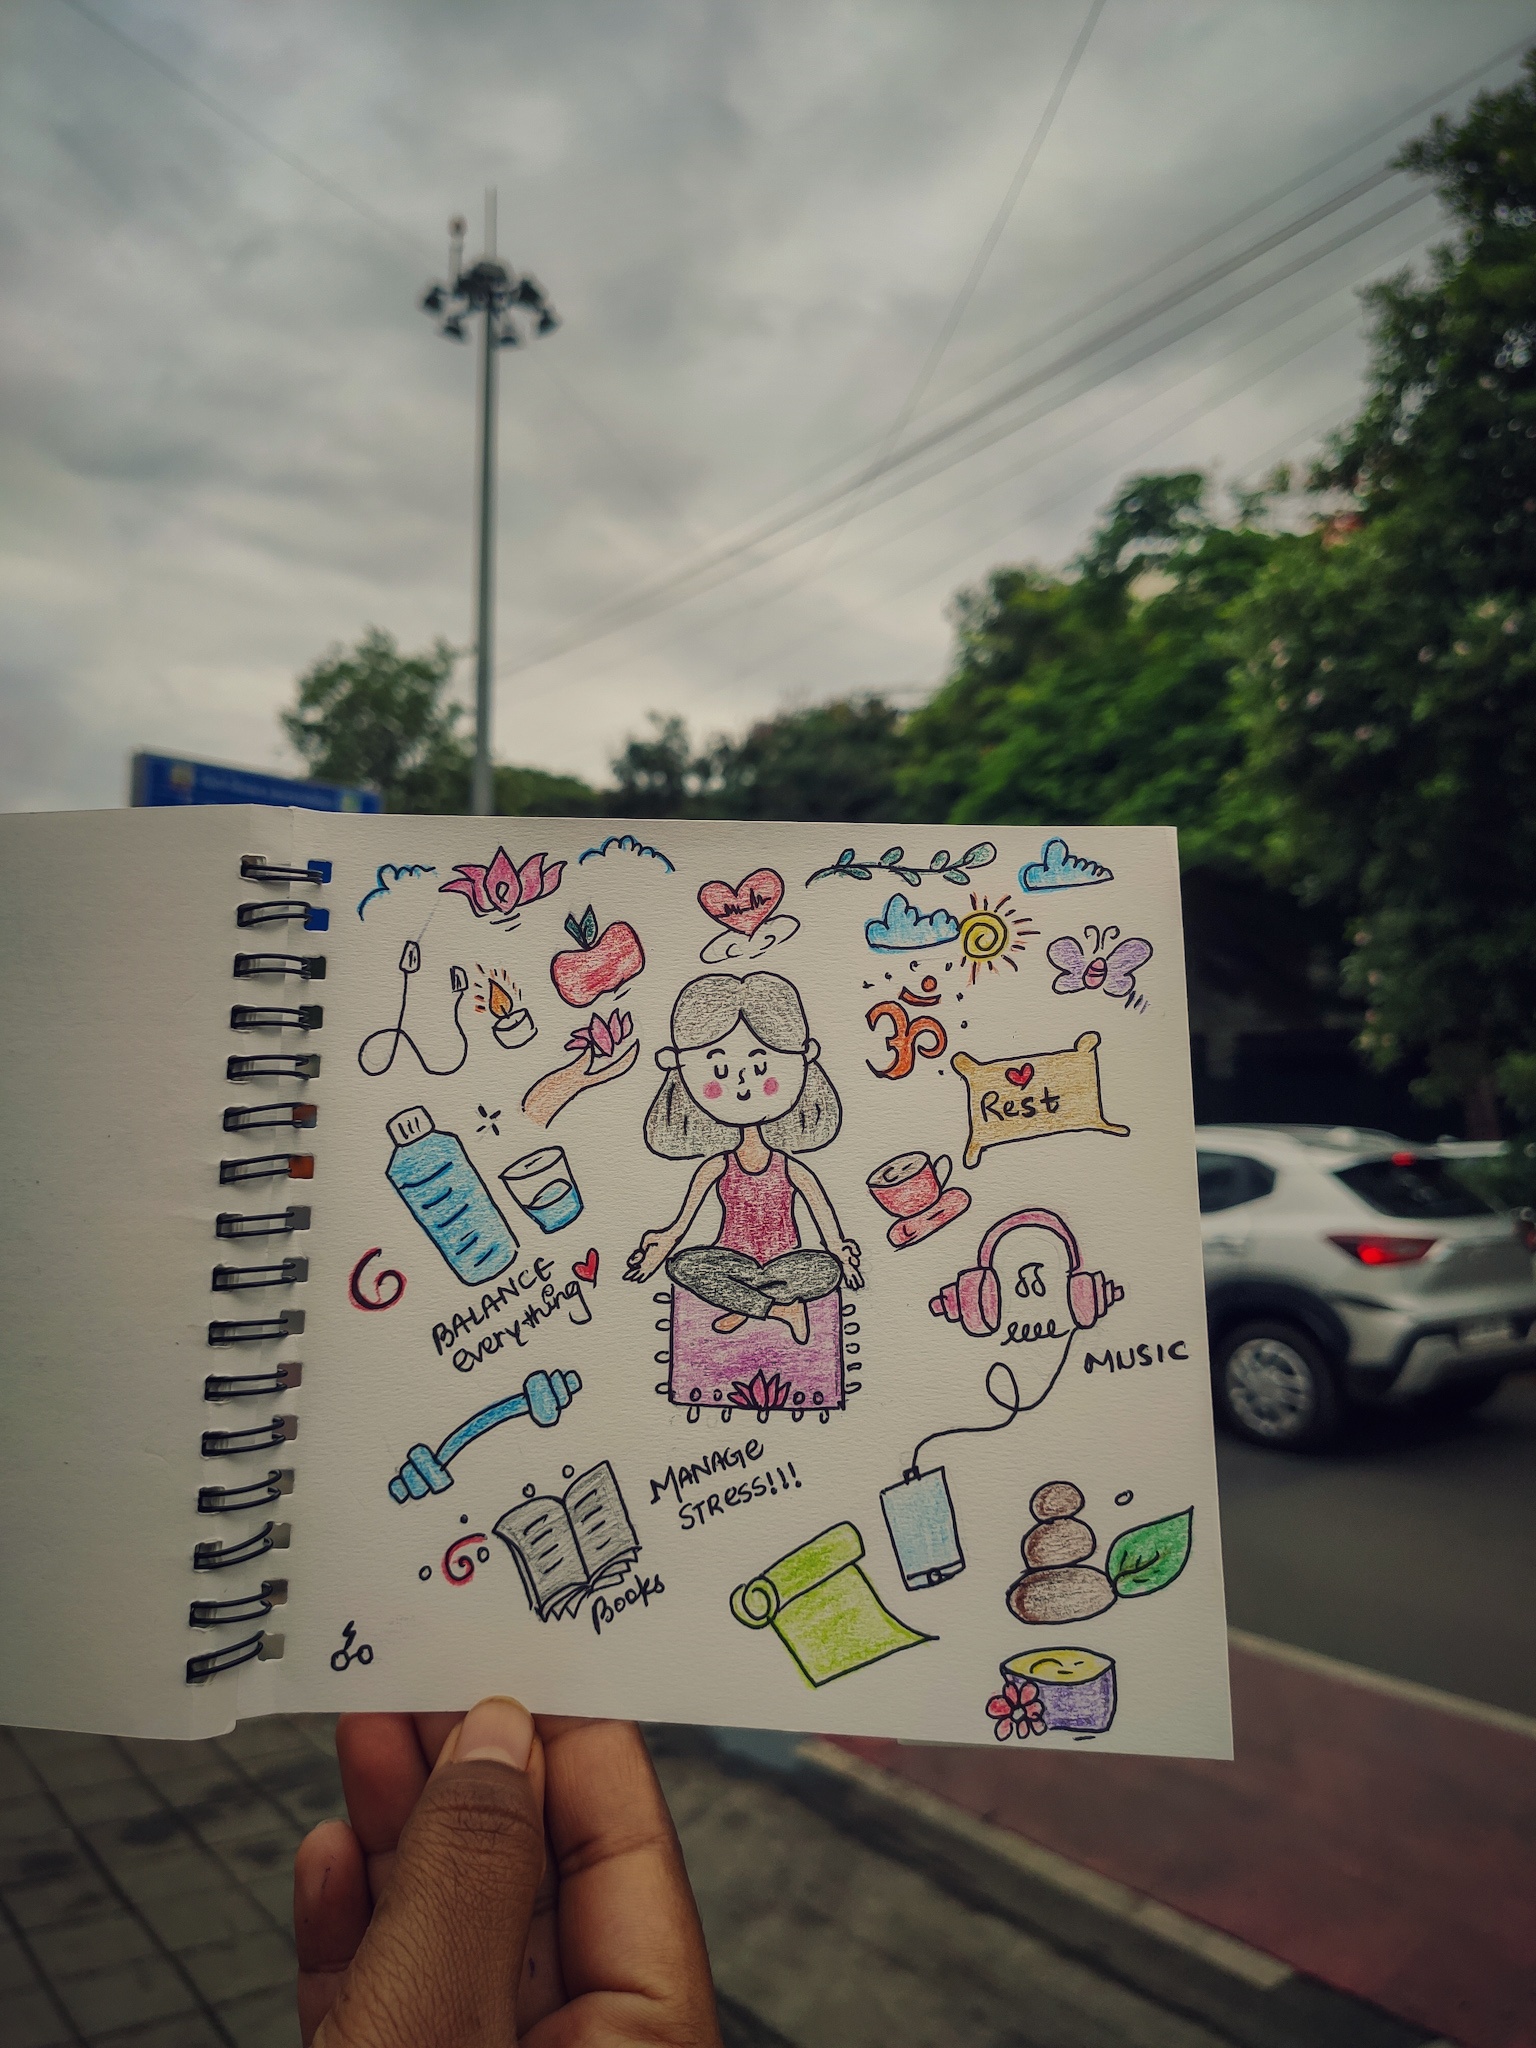 ॐ
Rest
BALANCE
everything
MUSIC
MANAGE
STRESS!!!
Books